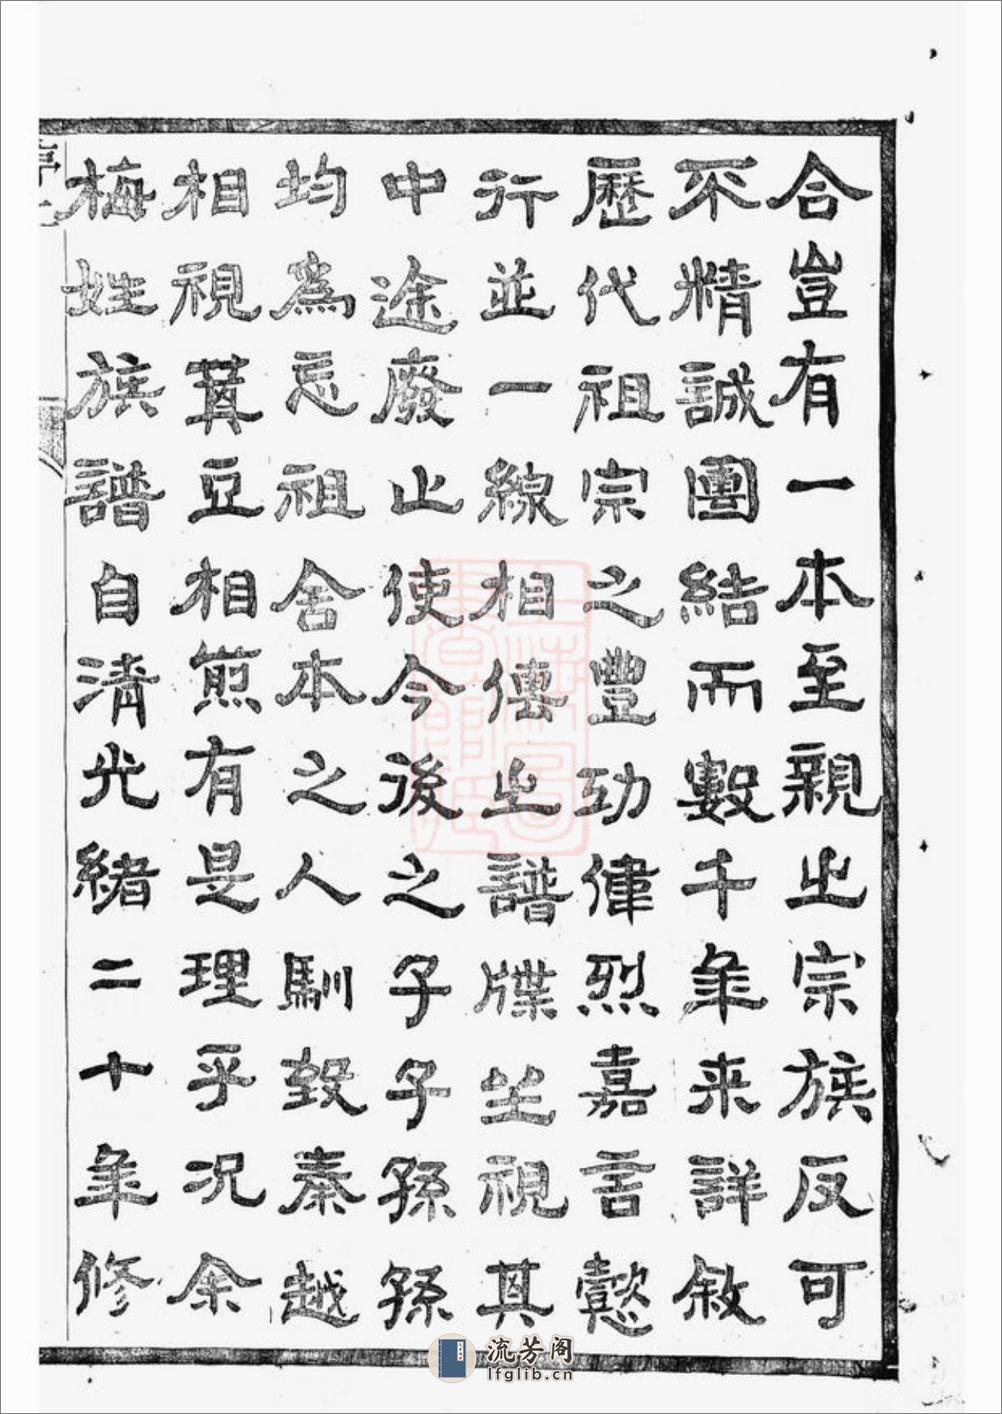 合豈有一本至親之宗族反可
不精誠團結而數千年来詳敘
歷代祖宗之豐功偉烈嘉言懿
行並一線相傳之譜牒坐視其
中途廢止使今後之子子孫孫
均為忘祖舍本之人馴致秦越
相視萁豆相煎有是理乎况余
梅姓族譜自清光緒二十年修
流芳阁
lfglib.cn